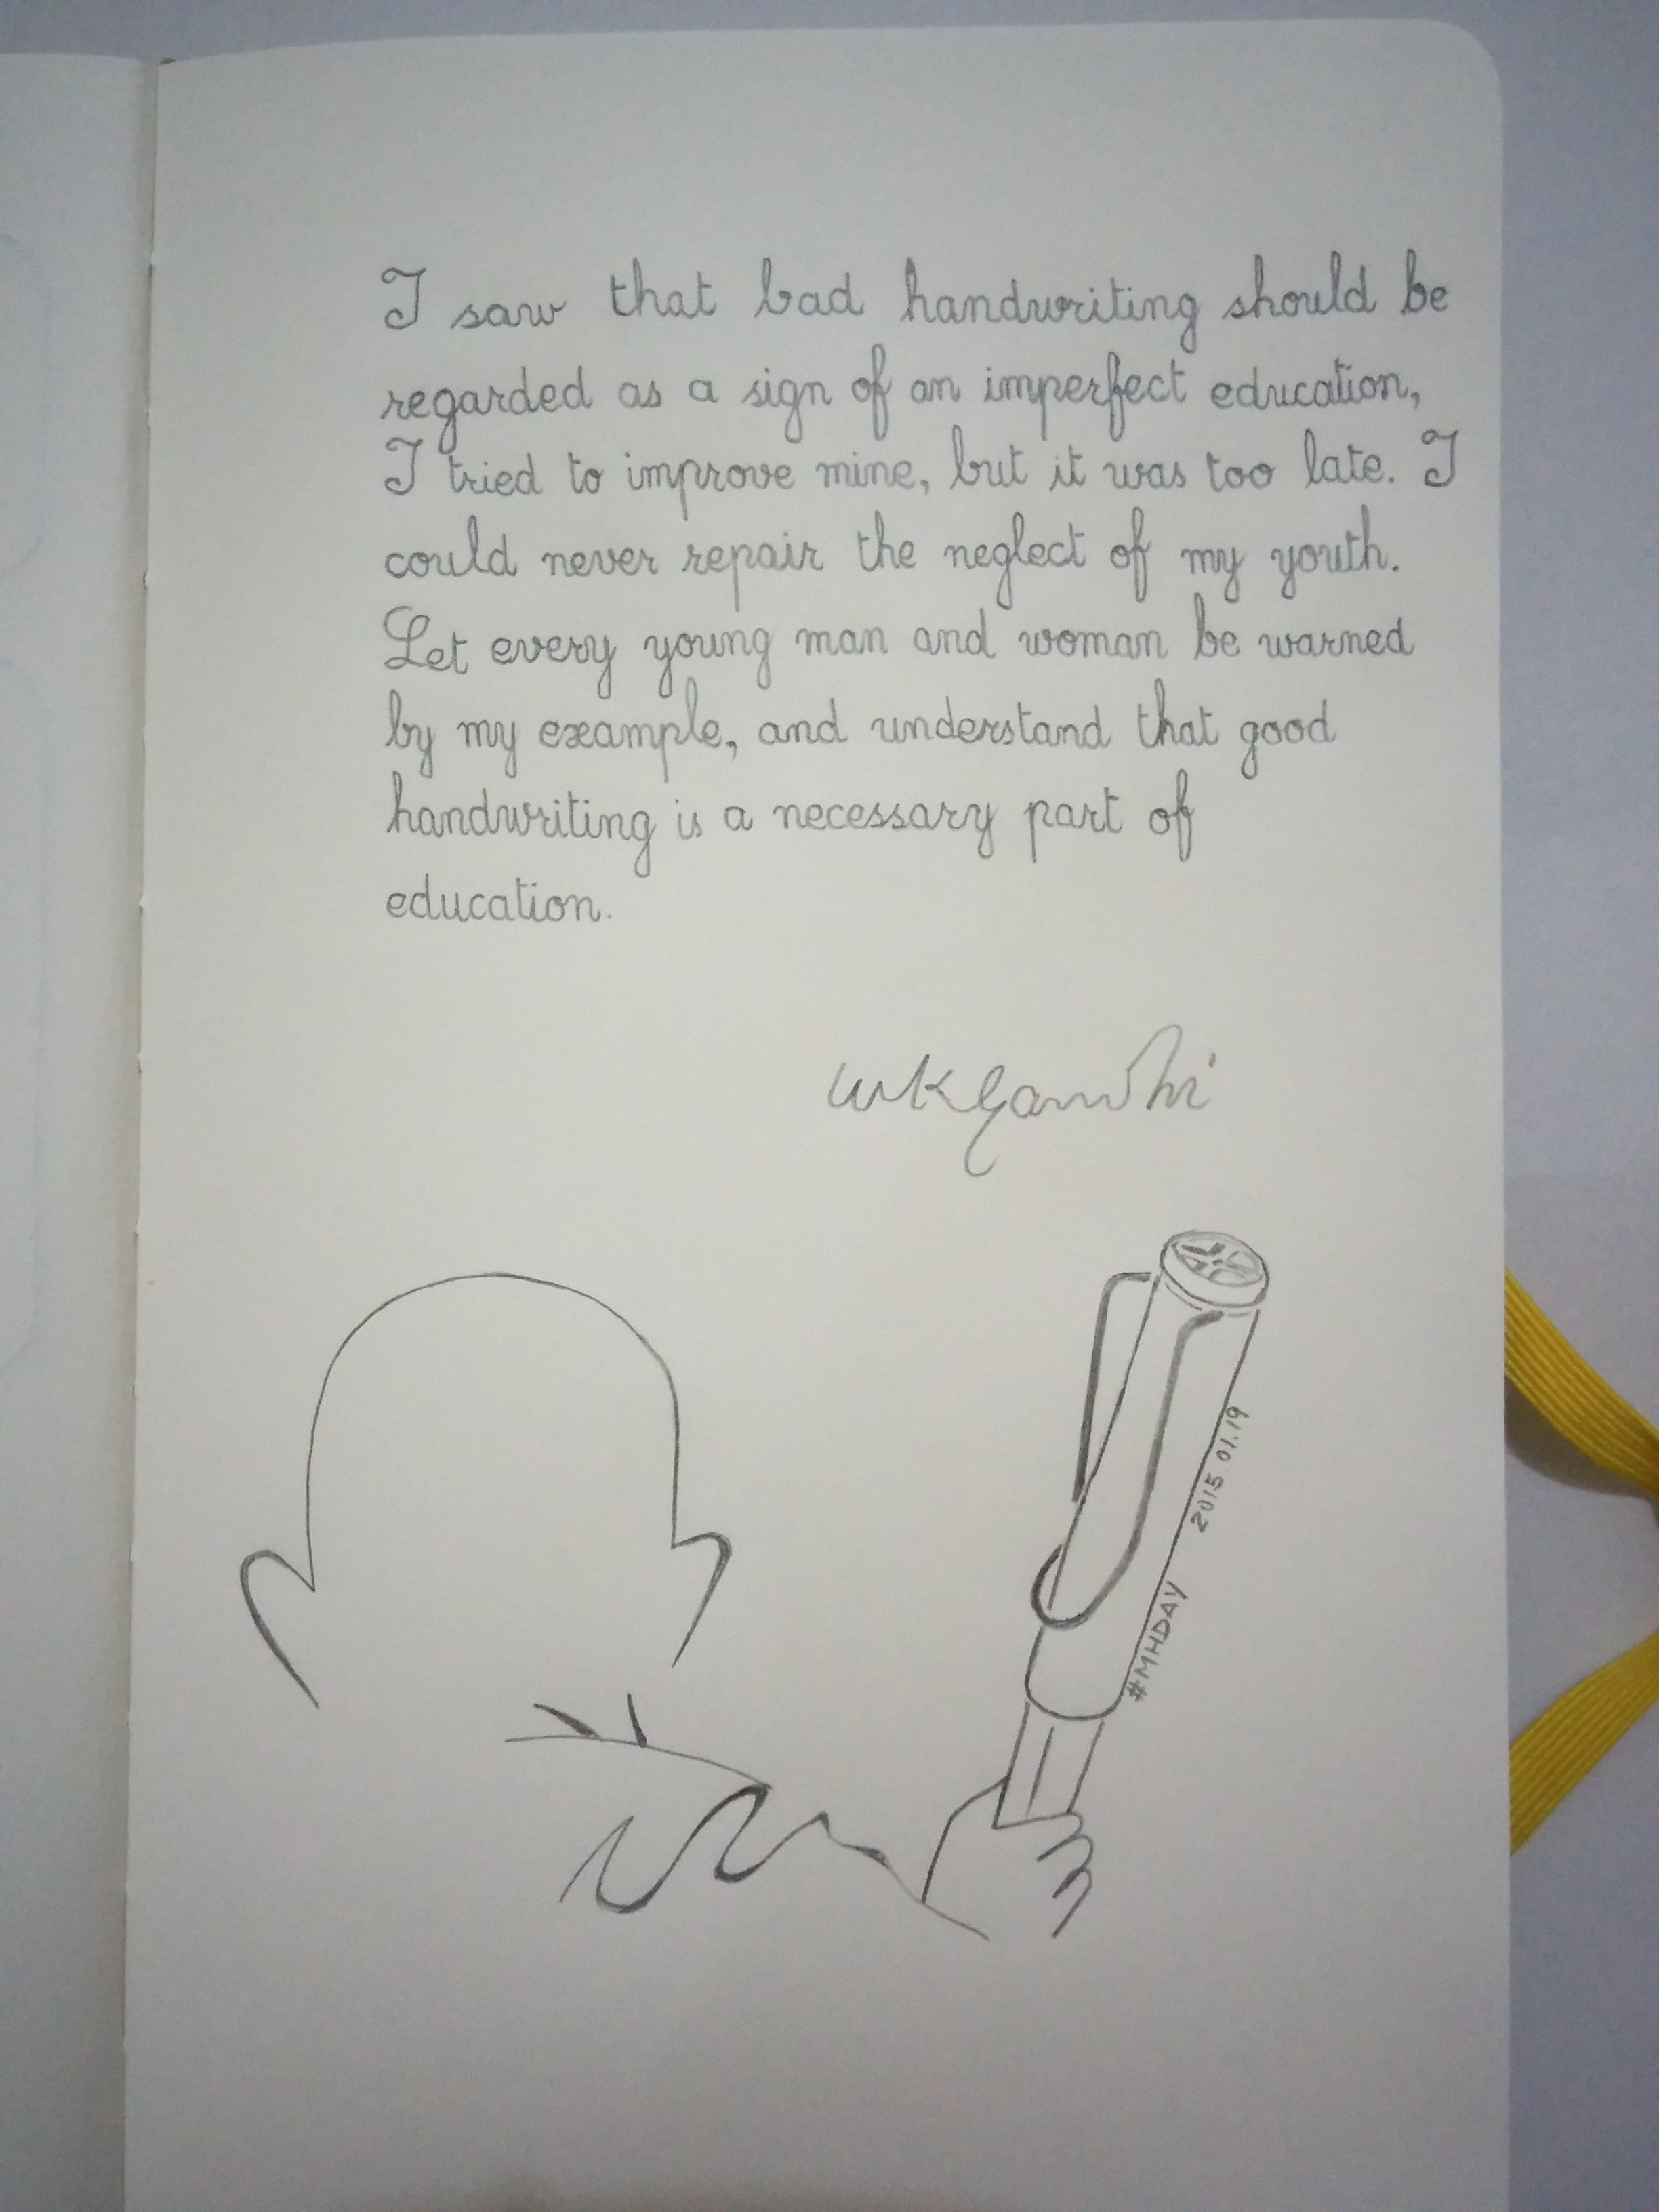 I saw that bad handwriting should be
regarded as a sign of an imperfect education,
I tried to improve mine, but it was too late. I
could never repair the neglect of my youth.
Let every young man and woman be warned
by my example, and understand that good
handwriting is a necessary part of
education.
MKGandhi
#MHDAY 2015.01.19